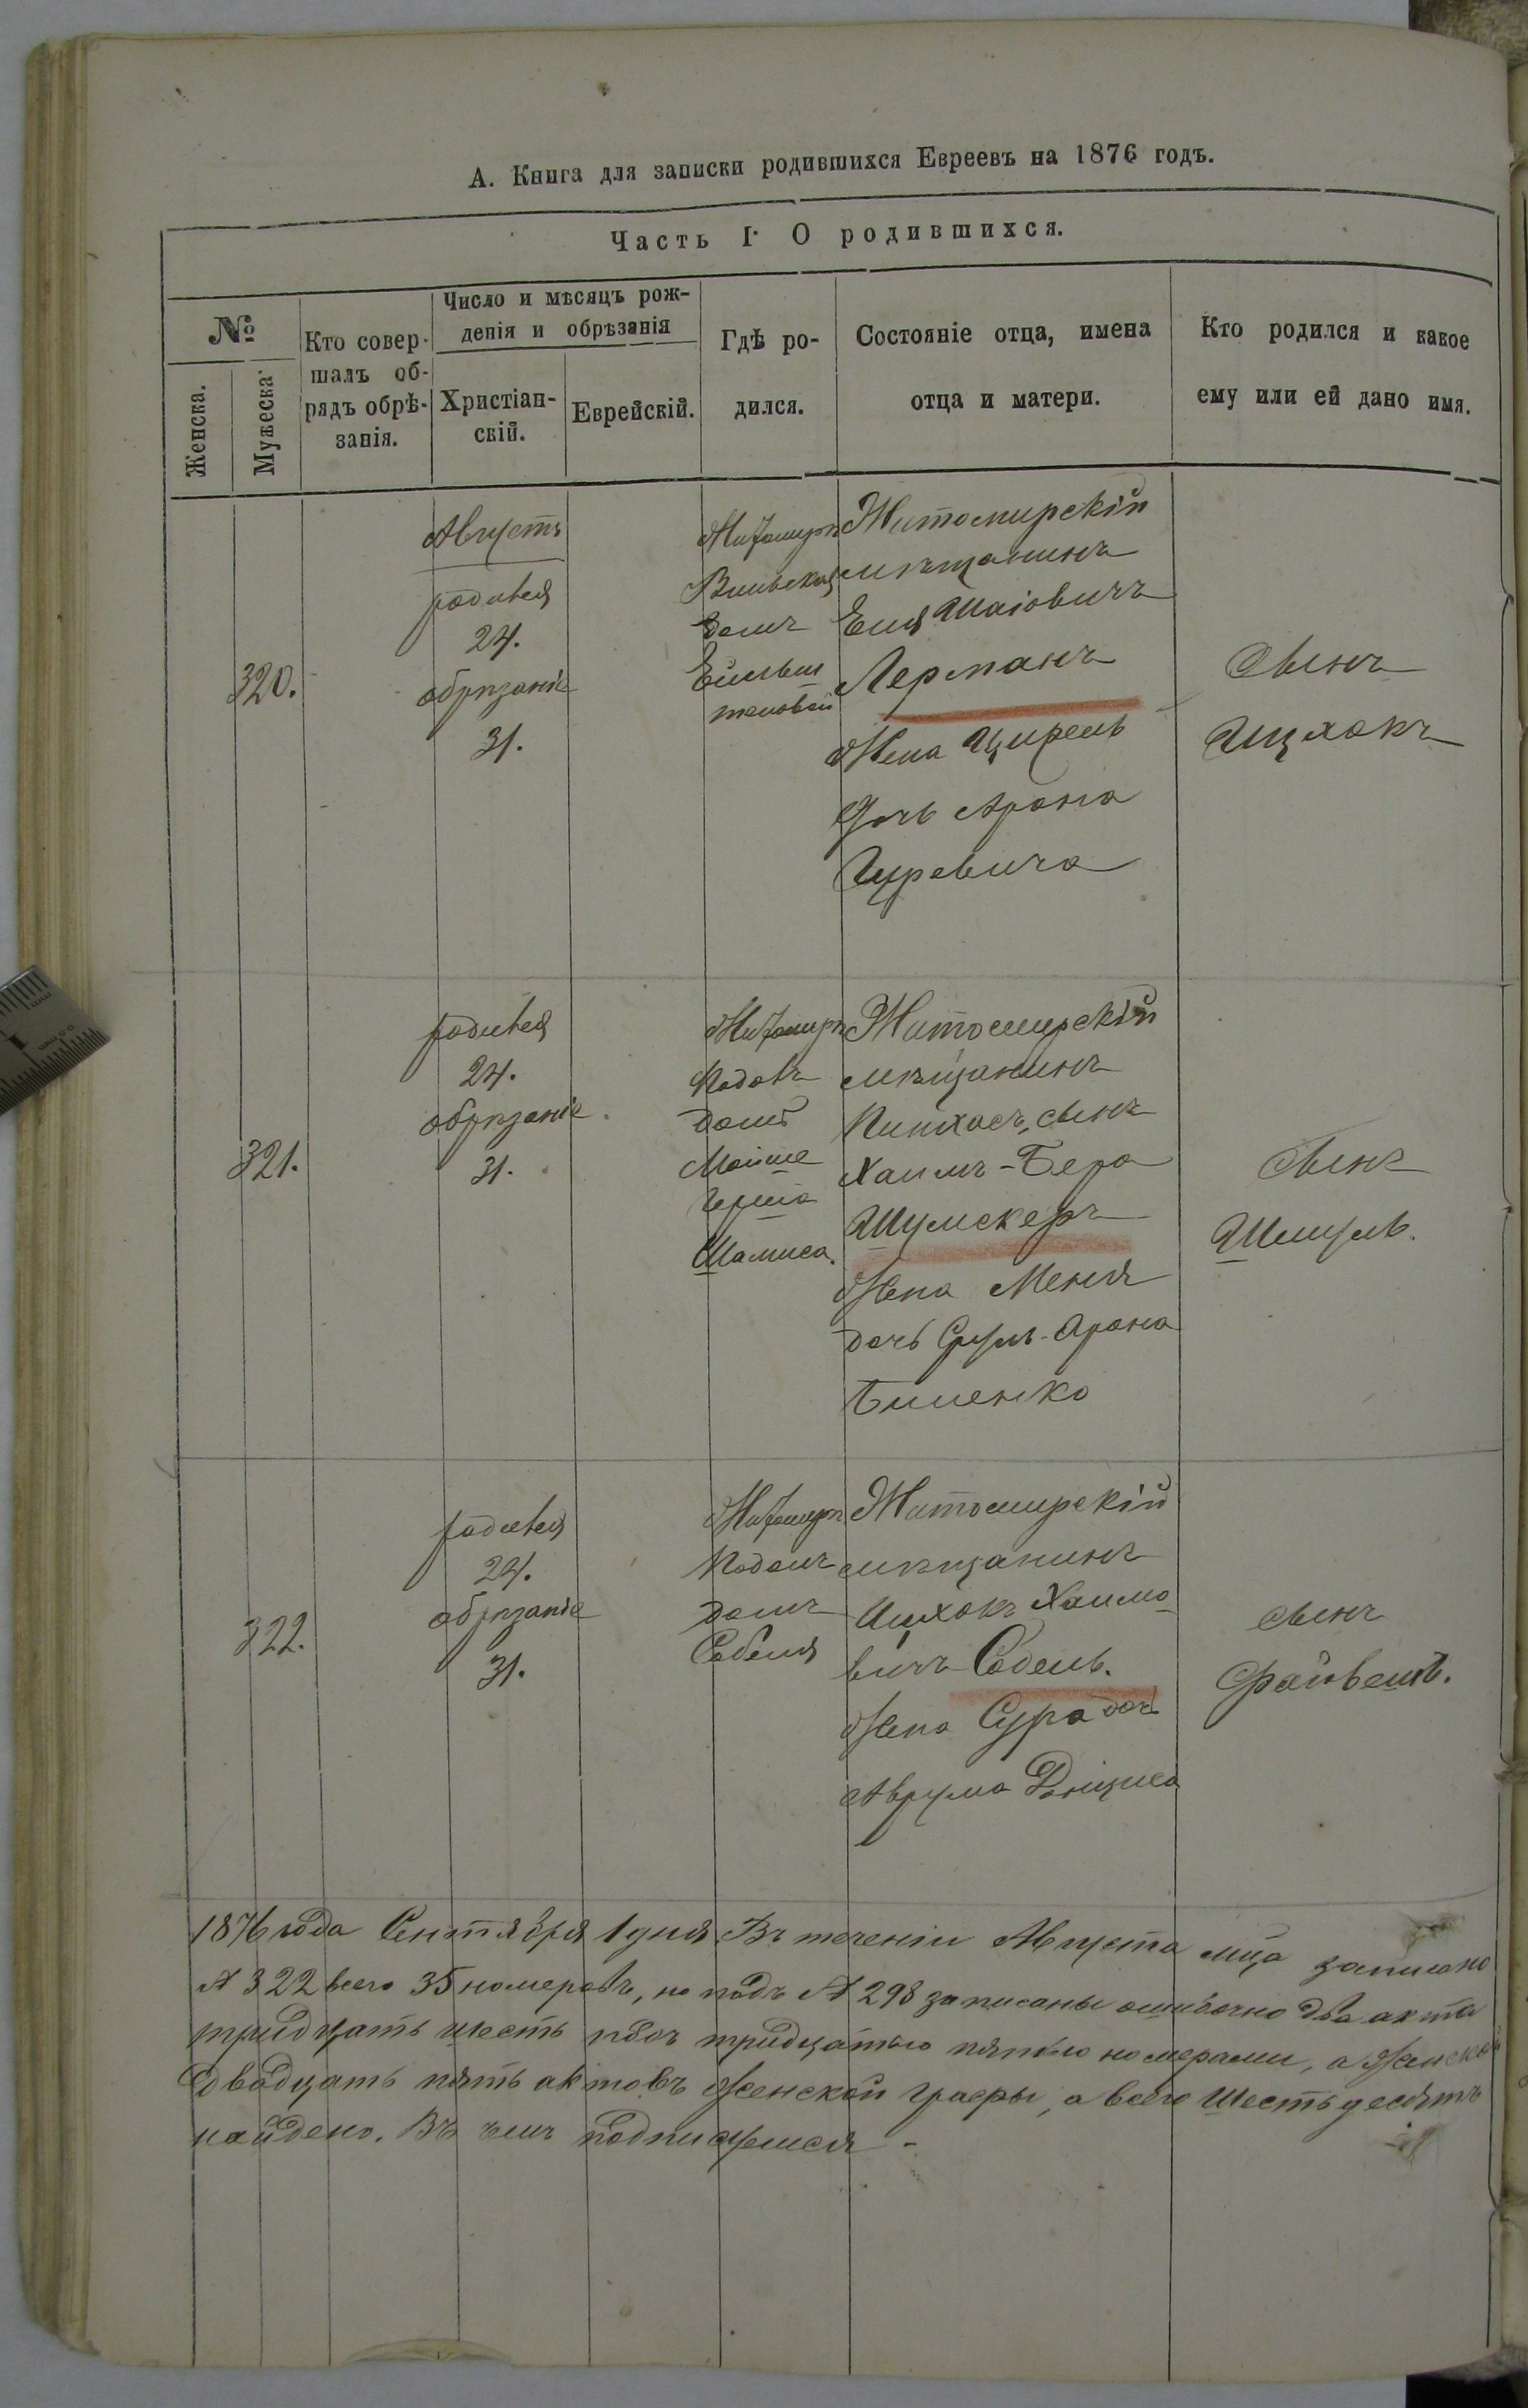 А. Книга для записки родившихся Евреевъ на 1876 годъ.
Часть I. О родившихся.
№
Женска.
Мужеска.
Кто совер-
шалъ об-
рядъ обрѣ-
занія.
Число и мѣсяцъ рож-
денія и обрѣзанія
Христіан-
скій.
Еврейскій.
Гдѣ ро-
дился.
Состояніе отца, имена
отца и матери.
Кто родился и какое
ему или ей дано имя.
320.
Августъ
родився
24.
обрѣзаніе
31.
Житомиръ
Вильская
домъ
Житомирскій
мѣщанинъ
Еля Шаіовичъ
Лерманъ
Жена Цирель
Дочь Арона
Гуревича
Сынъ
Ицхокъ
321.
родився
24.
обрѣзаніе
31.
Житомиръ
Подолъ
домъ
Мойше
Герша
Шамиса.
Житомирскій
мѣщанинъ
Пинхасъ, сынъ
Хаимъ-Бера
Шумскеръ
Жена Меня
дочь Сруль-Арона
Биленко
Сынъ
Шмуль.
322.
родився
24.
обрѣзаніе
31.
Житомиръ
Подолъ
домъ
Собеля
Житомирскій
мѣщанинъ
Ицхокъ Хаимо
вичъ Собель.
Жена Сура дочь
Аврума
сынъ
Файвешъ.
1876 года Сентября 1 дня Въ теченіи Августа мца записано
№ 322 всего 35 номеровъ, но подъ № 298 записаны ошибочно два акта
тридцать шесть подъ тридцатью пятью номерами, а Женской
двадцать пять актовъ Женской графы, а всего Шестьдесятъ
найдено. Въ чемъ подписуемся -